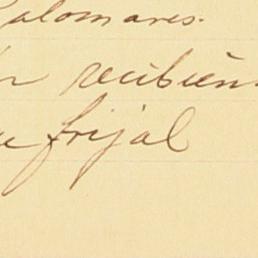 Palomares.
recibien
frijal